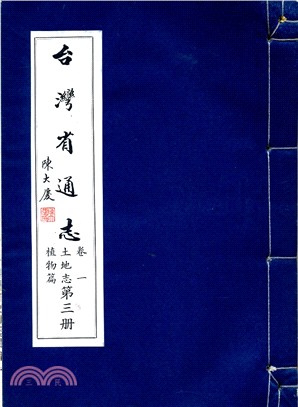 台灣省通志
陳大慶
卷一
土地志
植物篇
第三册
三民